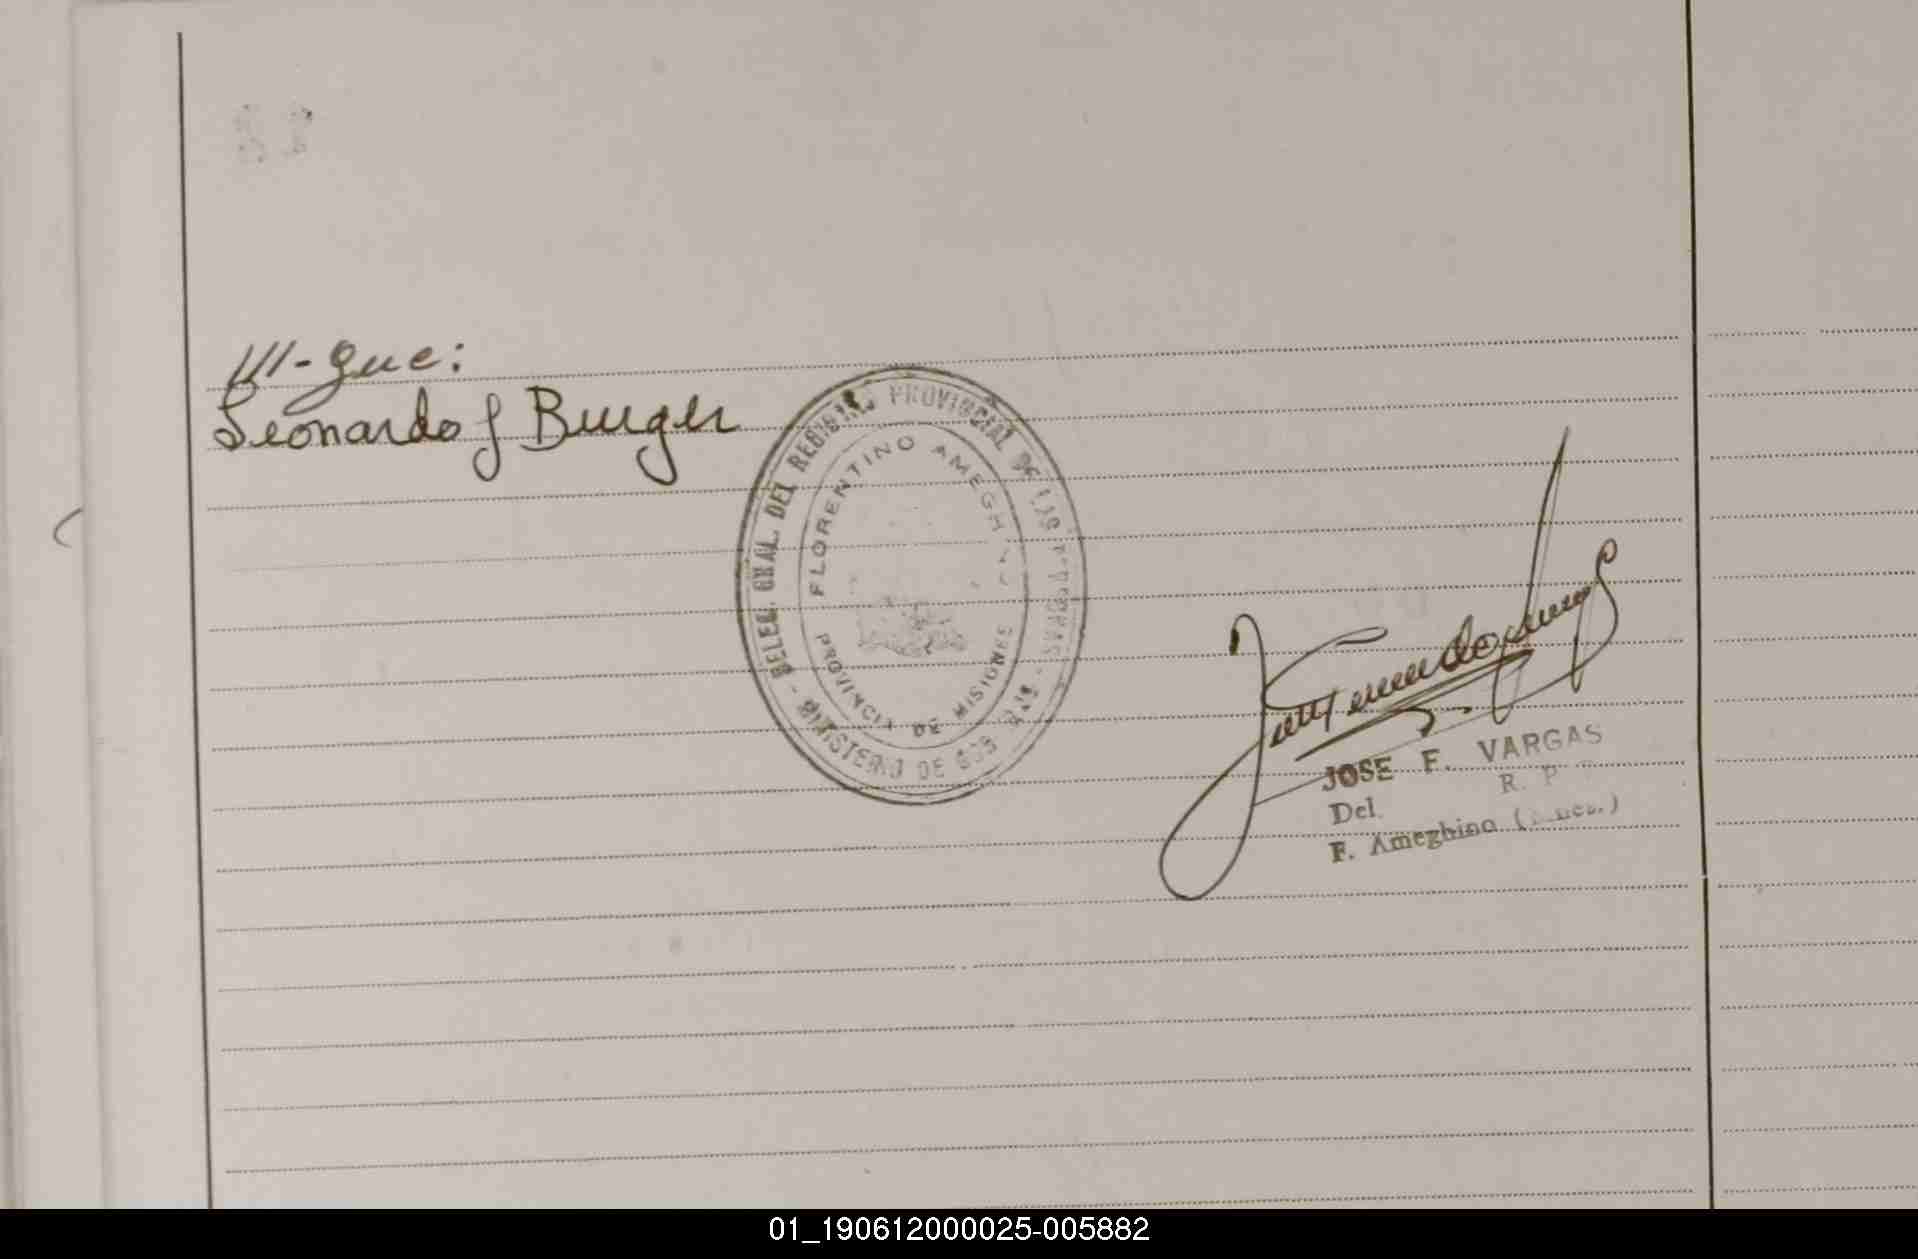 ///-que:
Leonardo J Burger
DELEG. GRAL. DEL REGISTRO PROVINCIAL DE LAS PERSONAS -
- MINISTERIO DE GOB
FLORENTINO AMEGHINO
PROVINCIA DE MISIONES
JOSE F. VARGAS
Del. R. P
F. Ameghino
01_190612000025-005882